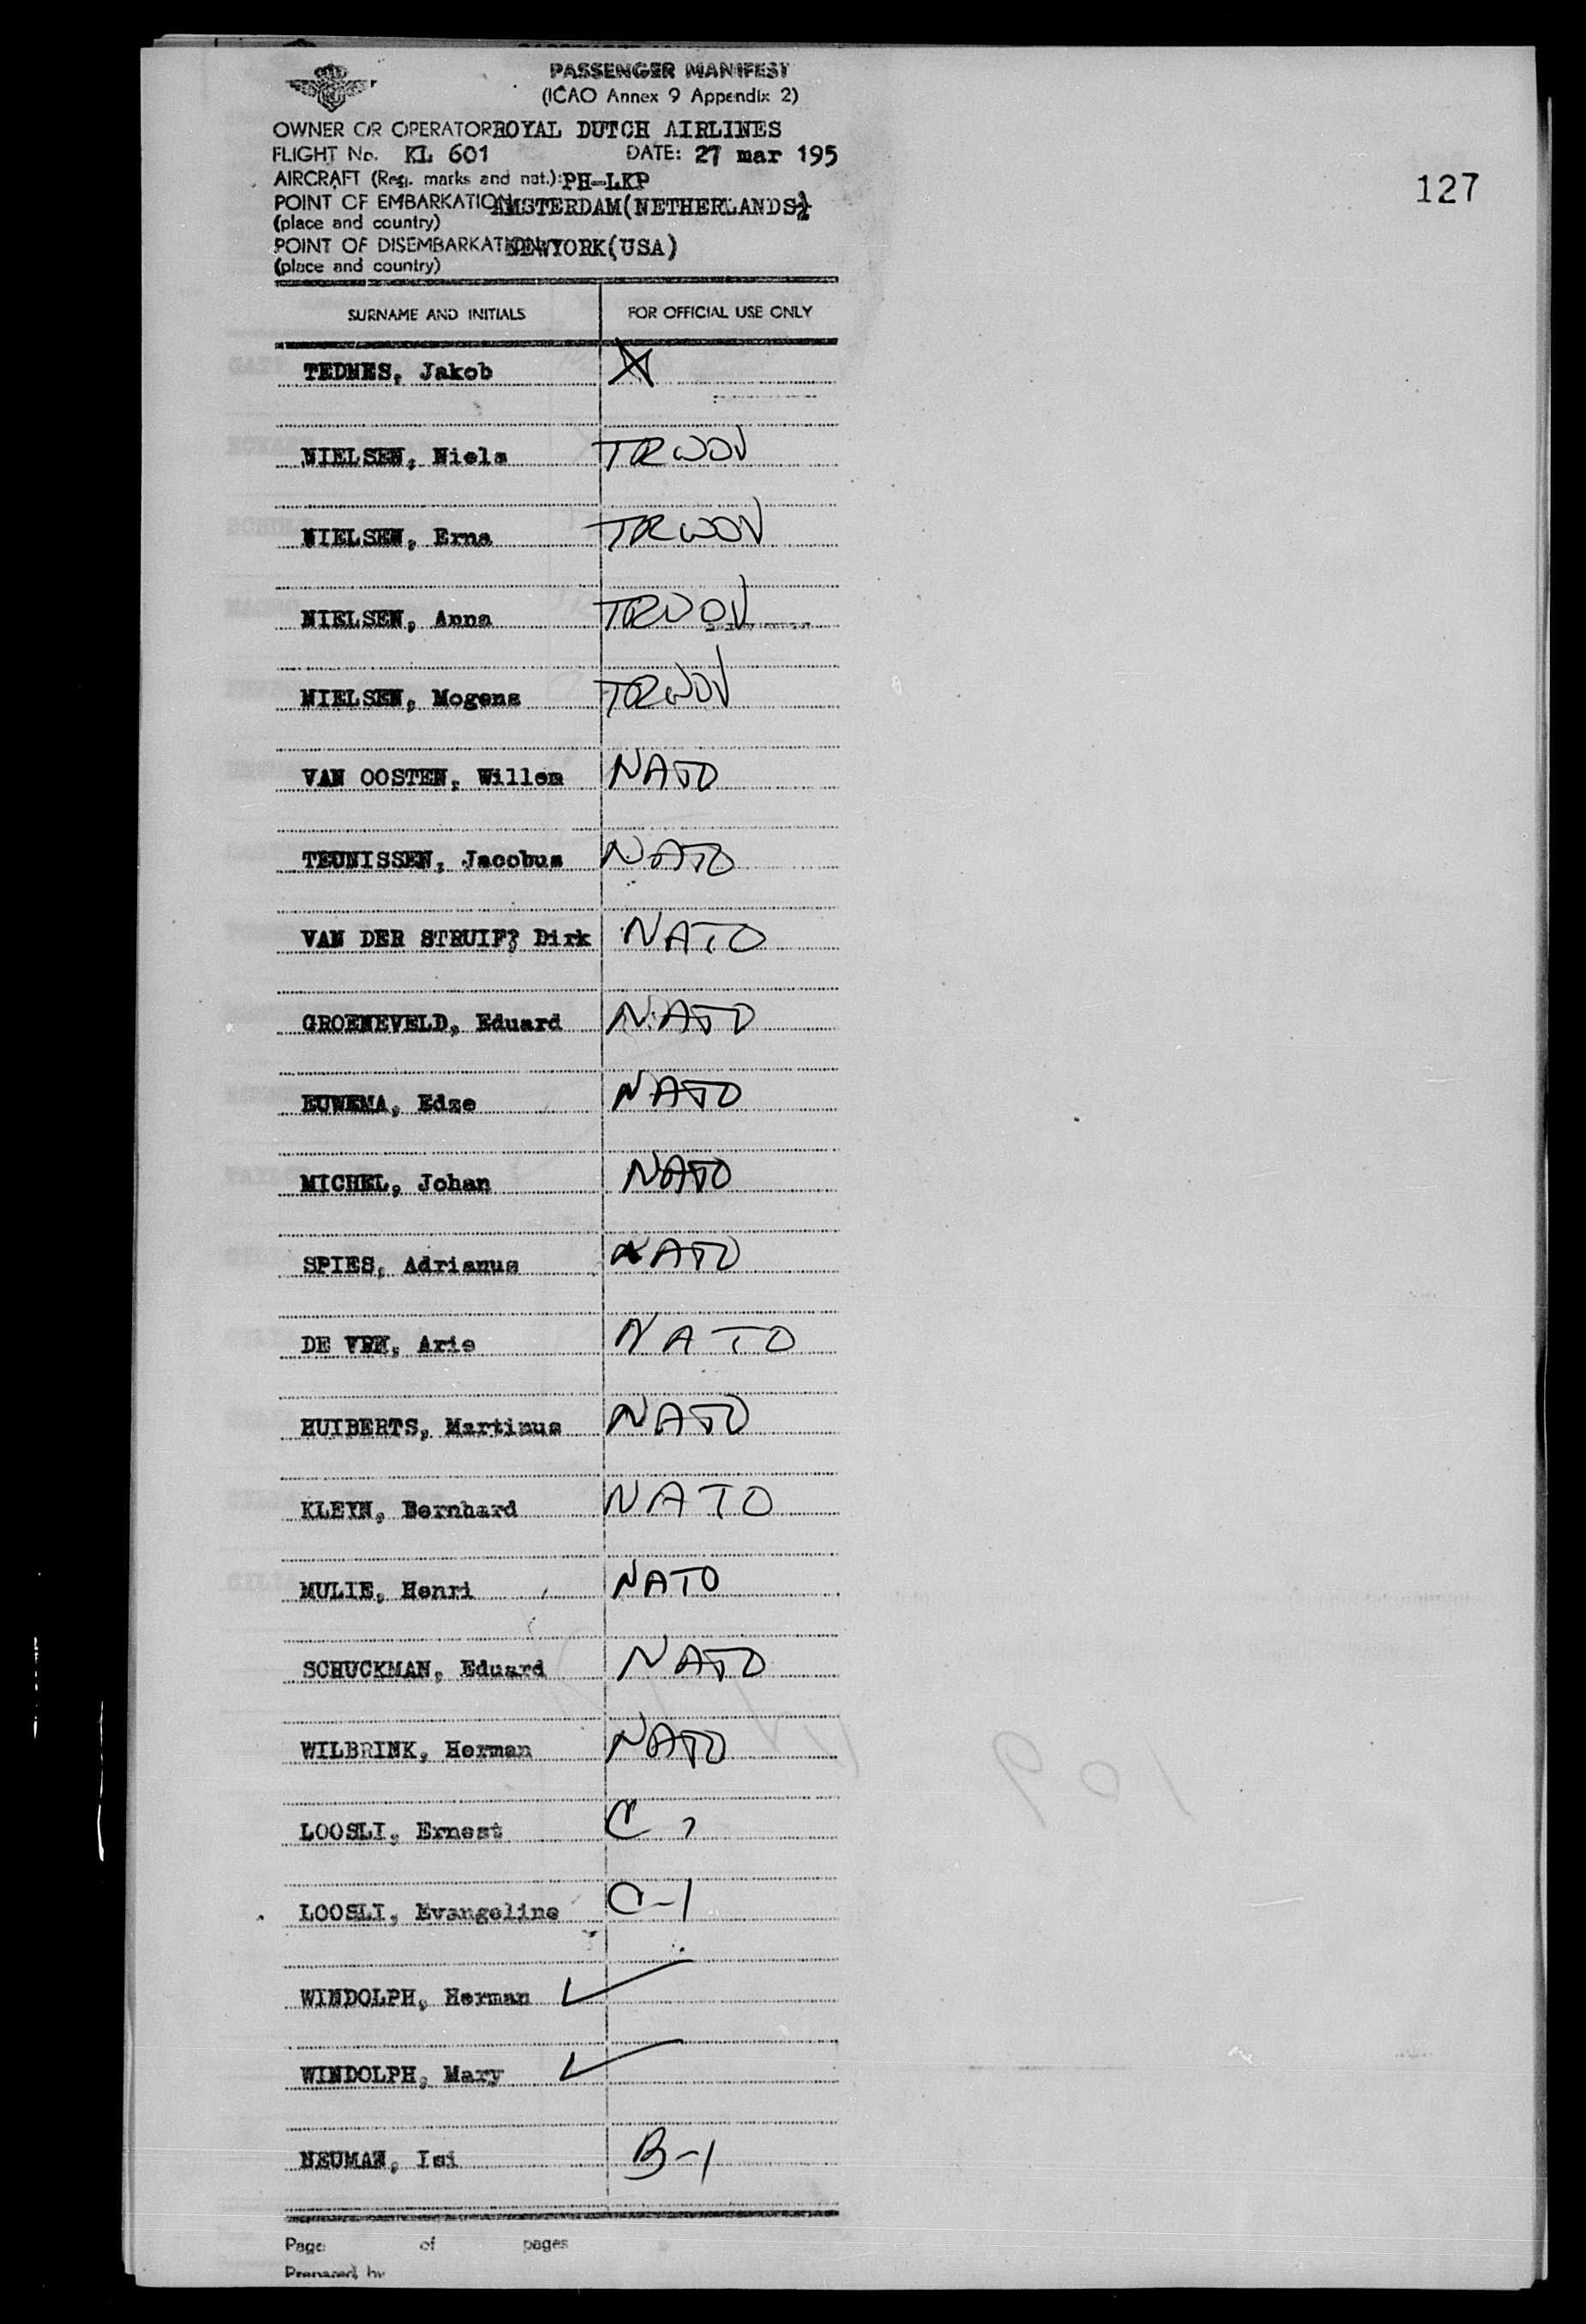 PASSENGER MANIFEST
(ICAO Annex 9 Appendix 2)
OWNER OR OPERATOR ROYAL DUTCH AIRLINES
FLIGHT No. KL 601 DATE: 27 mar 195
127
AIRCRAFT (Reg. marks and nat.): PH-LKP
POINT OF EMBARKATION AMSTERDAM(NETHERLANDS)
(place and country)
POINT OF DISEMBARKATION NEWYORK(USA)
(place and country)
SURNAME AND INITIALS FOR OFFICIAL USE ONLY
TEDMES, Jakob
NIELSEN, Niels TRWOV
NIELSEN, Erna TRWOV
NIELSEN, Anna TRWOV
NIELSEN, Mogens TRWOV
VAN OOSTEN, Willem NATO
TEUNISSEN, Jacobus NATO
VAN DER STRUIF? Dirk NATO
GROENEVELD, Eduard NATO
EUWEMA, Edze NATO
MICHEL, Johan NATO
SPIES, Adrianus NATO
DE Arie NATO
HUIBERTS, Martinus NATO
KLEYN, Bernhard NATO
MULIE, Henri NATO
SCHUCKMAN, Eduard NATO
WILBRINK, Herman NATO
LOOSLI, Ernest C
LOOSLI, Evangeline C-1
WINDOLPH, Herman ✓
WINDOLPH, Mary ✓
NEUMAN, Isi B-1
Page of pages
Prepared by